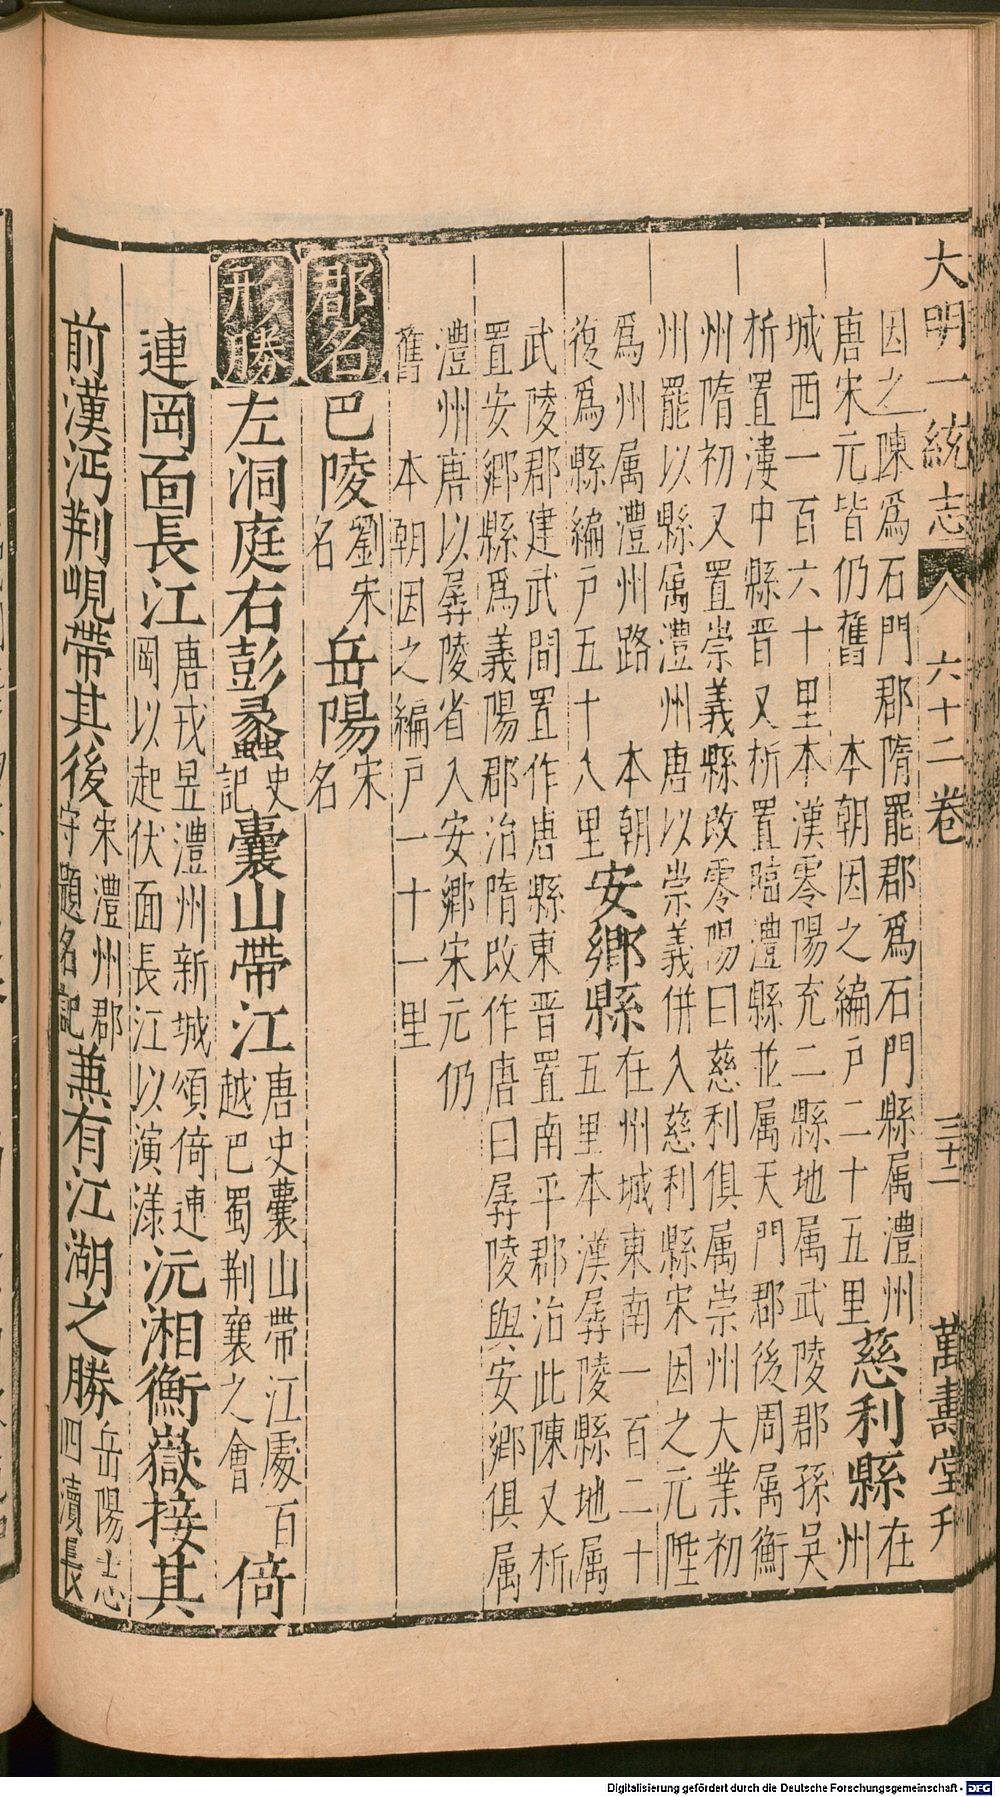 大明一統志 六十二卷 三十二 萬壽堂刋
因之陳爲石門郡隋罷郡爲石門縣属澧州
唐宋元皆仍舊 本朝因之編戶二十五里
慈利縣
在州
城西一百六十里本漢零陽充二縣地属武陵郡孫吳
析置漊中縣晋又析置臨澧縣並属天門郡後周属衡
州隋初又置崇義縣改零陽曰慈利俱属崇州大業初
州罷以縣属澧州唐以崇義併入慈利縣宋因之元陞
爲州属澧州路 本朝
復爲縣編戶五十八里
安鄉縣
在州城東南一百二十
五里本漢孱陵縣地属
武陵郡建武間置作唐縣東晋置南平郡治此陳又析
置安鄉縣爲義陽郡治隋改作唐曰孱陵與安鄉俱属
澧州唐以孱陵省入安鄉宋元仍
舊 本朝因之編戶一十一里
郡名 巴陵 劉宋名 岳陽 宋名
形勝 左洞庭右彭蠡 史記 囊山帶江 唐史囊山帶江處百越巴蜀荆襄之會 倚
連岡面長江 唐戎昱澧州新城頌倚連岡以起伏面長江以演漾 沅湘衡嶽接其
前漢沔荆峴帶其後 宋澧州郡守題名記 兼有江湖之勝 岳陽志四瀆長
Digitalisierung gefördert durch die Deutsche Forschungsgemeinschaft - DFG